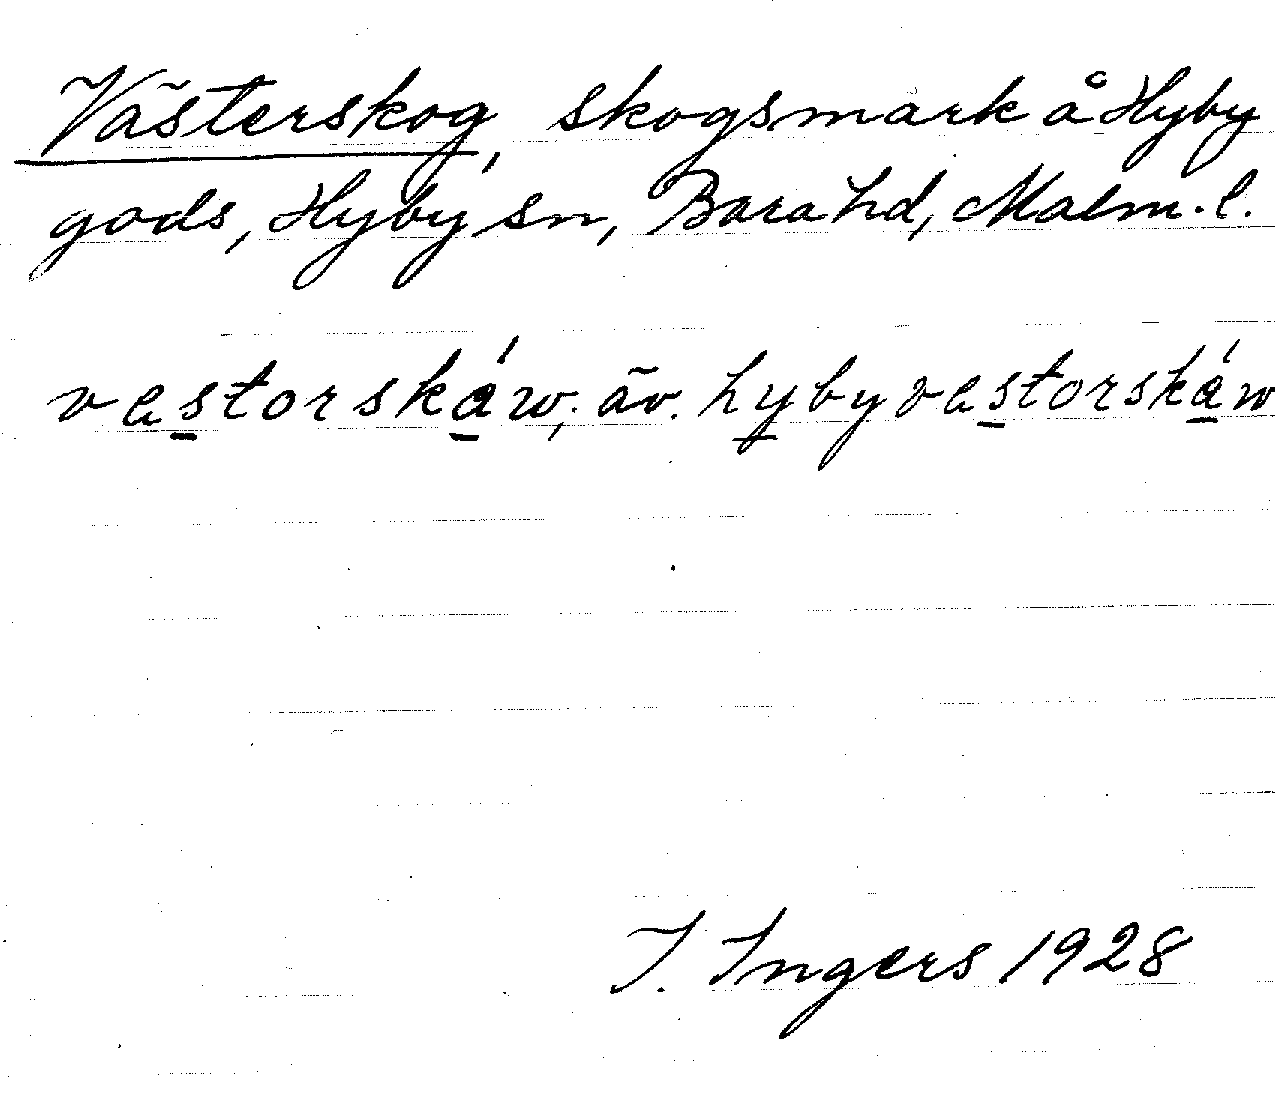 Västerskog, skogsmark å Hyby
gods, Hyby sn, Bara hd, Malm. l.
vestorskáw; äv. hybyvestorskáw
I. Ingers 1928